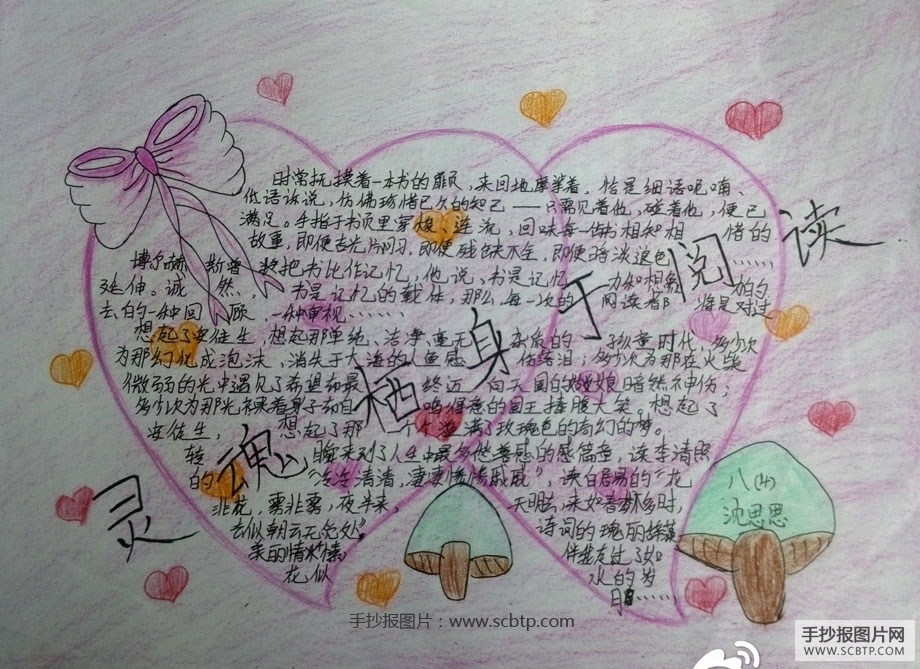 时常抚摸着一本书的扉页,来回地摩挲着,恰是细语呢喃、
低语诉说,仿佛珍惜已久的知己——只需见着他,碰着他,便已
满足。手指于书页里穿梭、逆流,回味每一书相知相惜的
故事,即便吉光片羽,即便残缺不全,即便暗淡退色……
博尔赫斯曾把书比作记忆,他说,书是记忆力和想象力的
延伸。诚然,书是记忆的载体,那么,每一次的阅读都恰是对过
去的一种回顾,一种审视……
想起了安徒生,想起那单纯、洁净、毫无杂质的孩童时代,多少次
为那幻化成泡沫,消失于大海的人鱼感伤落泪;多少次为那在火柴
微弱的光中遇见了希望却最终迈向天国的姑娘暗然神伤;
多少次为那光裸着身子却自鸣得意的国王捧腹大笑。想起了
安徒生,想起了那一个个溢满了玫瑰色的奇幻的梦。
转瞬来到了人生中最多愁善感的感篇章,读李清照
的“冷冷清清,凄凄惨惨戚戚”,读白居易的“花
非花,雾非雾,夜半来,天明去,来如春梦多时,
去似朝云无觅处”。诗词的瑰丽
美的情愫伴我走过了如
花似水的岁
月……
灵魂栖身于阅读
八(4)
沈思思
手抄报图片:www.scbtp.com
手抄报图片网
WWW.SCBTP.COM